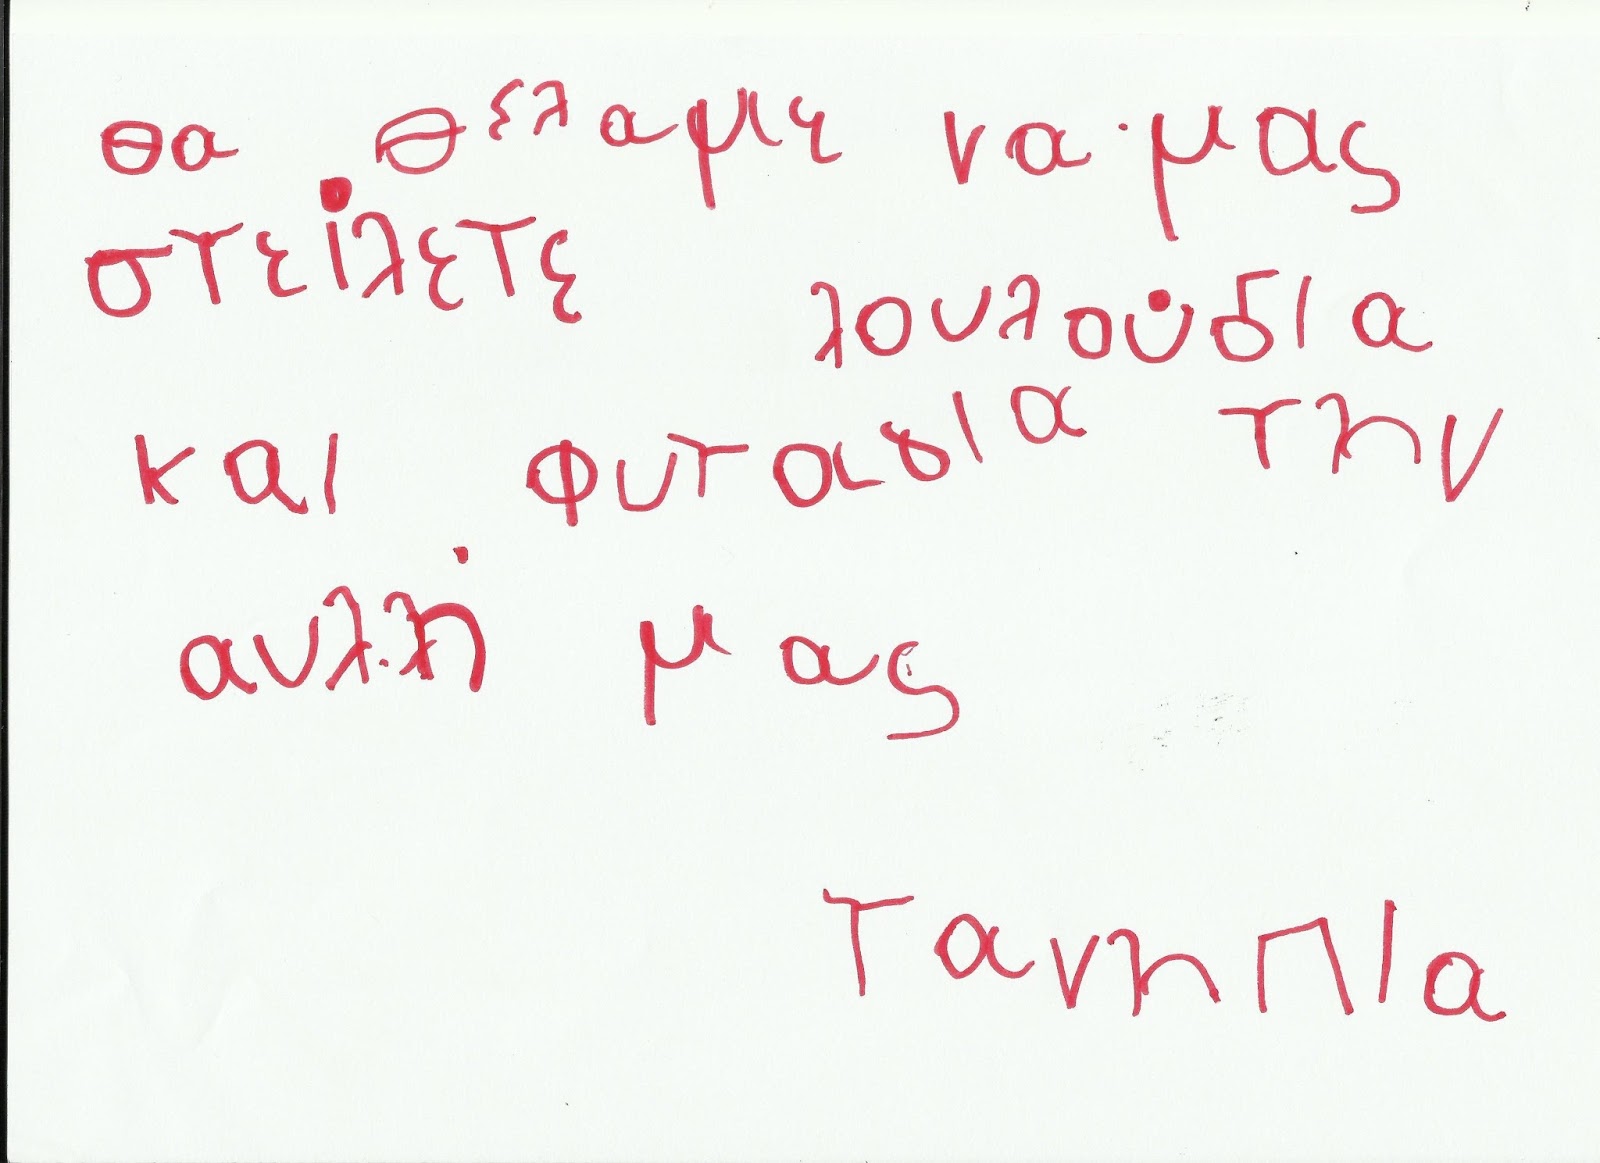 θα θελαμε να μας
στείλετε λουλούδια
και φυταγια την
αυλή μας
Τα νηπια